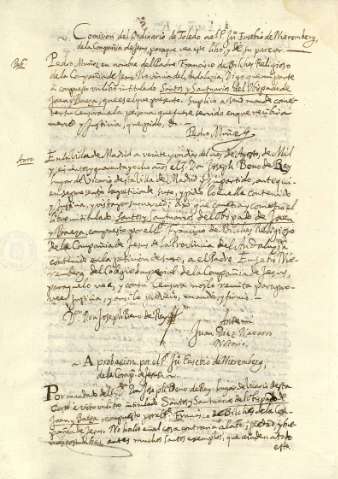 Comision del Ordinario de Toledo al P. Ju. Eusebio de Nieremberg,
de la Compañia de Jesus, para que vea este libro y de su parecer.
Pet.
Pedro Muñoz, en nombre del Padre Francisco de Bilches Religioso
de la Compañia de Jesus Provincia del Andalucia, Digo que mi parte
à compuesto un libro intitulado Santos y Santuarios del Obispado de
Jaen y Baeza, que es el que presento. Suplico a Vmd mande
la persona que fuere servido en que recibira
merced y Justicia, que pido, &
Pedro Muñoz
Auto
En la villa de Madrid a veinte y dias del mes de Agosto, de Mil
y seiscientos y quarenta y ocho años, el Dr. Don Joseph Beno de Rey
lugar del Vicario de la villa de Madrid y su partido, ante quien
se presento la peticion de suso, y pidio lo en ella contenido
y Justicia, y visto por su merced; dijo que cometia y cometio el
libro intitulado Santos y Santuarios del Obispado de Jaen
y Baeza, compuesto por el P. Francisco de Bilches Religioso
de la Compañia de Jesus de la Provincia de la Andalucia,
contenido en la peticion de suso, a el Padre Eusebio Nie-
remberg, del Colegio Imperial de la Compañia de Jesus,
para que lo vea, y con la censura se lo remita para pro-
veer Justicia, y asi lo proveyo, mando y firmo.
Dr. Don Joseph Beno de Rey
Ante mi
Juan Navarro
Notario
Aprobacion por el P. Ju. Eusebio de Nieremberg,
de la Comp. de Jesus.
Por mandado del Sr. Don Joseph Beno de Rey, lugar de Vicario de esta
Corte è visto un libro intitulado Santos y Santuarios del Obispado de
Jaen y Baeza compuesto por el P. Francisco de Bilches de la Com-
pañia de Jesus. No hallo en el cosa contraria a la fe, y
antes muchos santos exemplos, que
esta